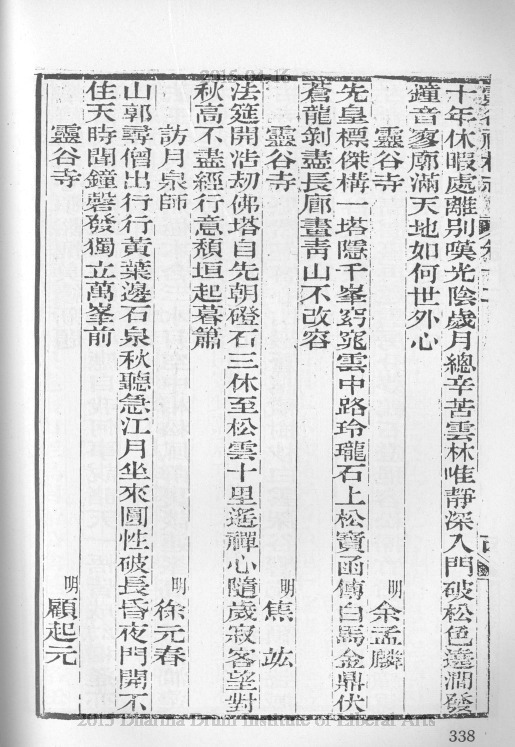 十年休暇處離別嘆光陰歲月總辛苦雲林唯靜深入門破松色遶澗發
鐘音寥廓滿天地如何世外心
靈谷寺 明 余孟麟
先皇標傑構一塔隱千峯窈窕雲中路玲瓏石上松寶函傳白馬金鼎伏
蒼龍剝盡長廊畫青山不改容
靈谷寺 明 焦竑
法筵開浩劫佛塔自先朝磴石三休至松雲十里遙禪心隨歲寂客望對
秋高不盡經行意頹垣起暮簫
訪月泉師 明 徐元春
山郭尋僧出行行黃葉邊石泉秋聽急江月坐來圓性破長昏夜門開不
住天時聞鐘磬發獨立萬峯前
靈谷寺 明 顧起元
338
2015 Dharma Drum Institute of Liberal Arts